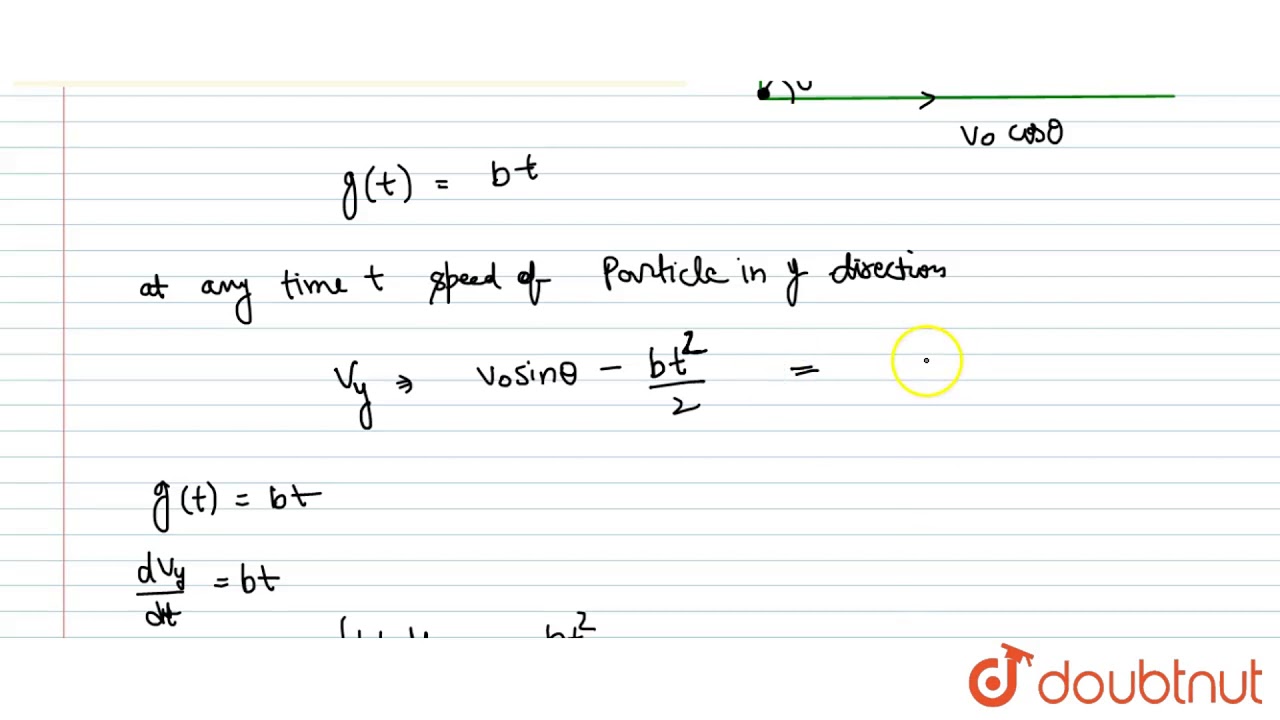 v₀ cosθ
g(t) = bt
at any time t speed of Particle in y direction
Vy ⇒ v₀sinθ - bt²/2 =
g(t) = bt
dVy/dt = bt
bt²
doubtnut